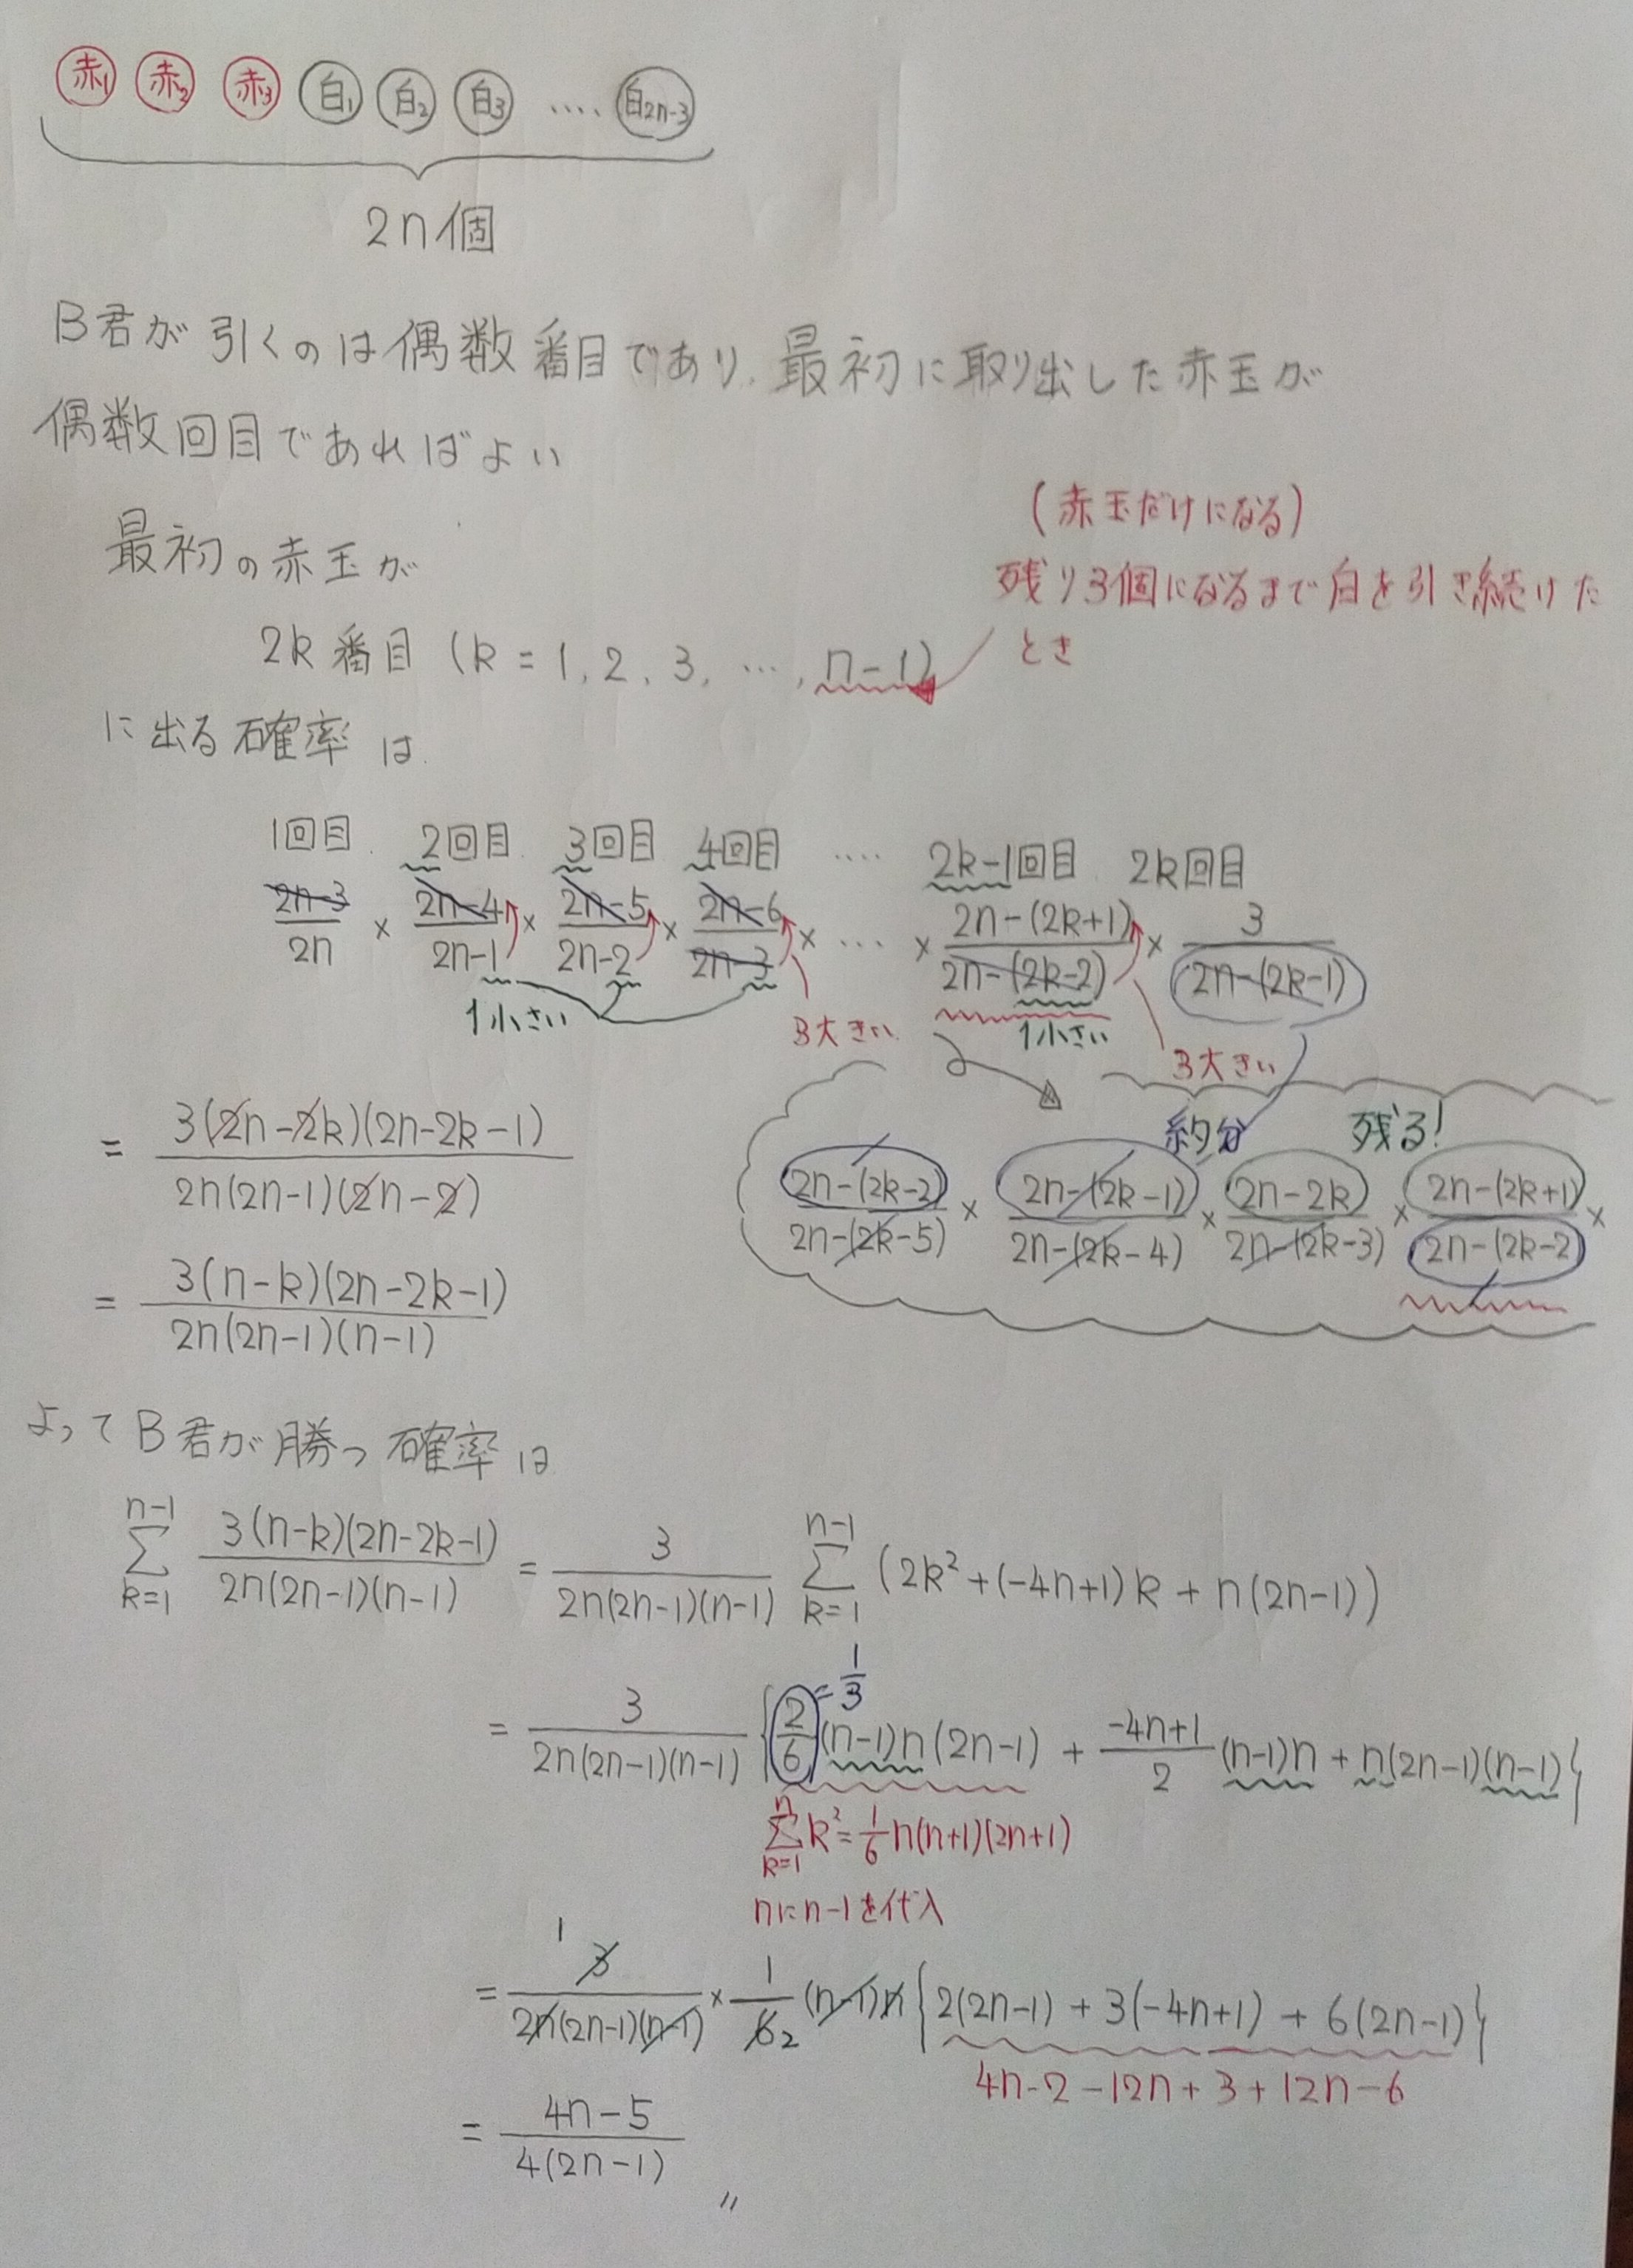 赤1 赤2 赤3 白1 白2 白3 .... 白2n-3
2n個
B君が引くのは偶数番目であり、最初に取り出した赤玉が
偶数回目であればよい
(赤玉だけになる)
残り3個になるまで白を引き続けた
とき
最初の赤玉が
2k番目 (k = 1, 2, 3, …, n-1)
に出る確率は
1回目 2回目 3回目 4回目 .... 2k-1回目 2k回目
(2n-3)/(2n) × (2n-4)/(2n-1) × (2n-5)/(2n-2) × (2n-6)/(2n-3) × … × (2n-(2k+1))/(2n-(2k-2)) × 3/(2n-(2k-1))
1小さい 3大きい 1小さい 3大きい
約分 残る!
(2n-(2k-2))/(2n-(2k-5)) × (2n-(2k-1))/(2n-(2k-4)) × (2n-2k)/(2n-(2k-3)) × (2n-(2k+1))/(2n-(2k-2)) ×
= 3(2n-2k)(2n-2k-1)/(2n(2n-1)(2n-2))
= 3(n-k)(2n-2k-1)/(2n(2n-1)(n-1))
よってB君が勝つ確率は
Σ_{k=1}^{n-1} 3(n-k)(2n-2k-1)/(2n(2n-1)(n-1)) = 3/(2n(2n-1)(n-1)) Σ_{k=1}^{n-1} (2k²+(-4n+1)k + n(2n-1))
= 1/3
= 3/(2n(2n-1)(n-1)) {2/6 (n-1)n(2n-1) + (-4n+1)/2 (n-1)n + n(2n-1)(n-1)}
Σ_{k=1}^{n} k² = 1/6 n(n+1)(2n+1)
nにn-1を代入
1
= 3/(2n(2n-1)(n-1)) × 1/6 (n-1)n {2(2n-1) + 3(-4n+1) + 6(2n-1)}
2
4n-2-12n+3+12n-6
= (4n-5)/(4(2n-1)) 〃